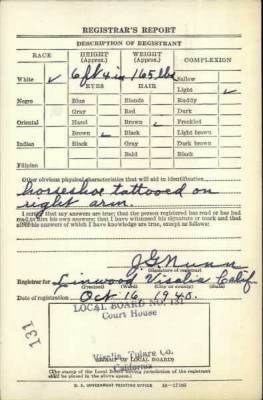 REGISTRAR'S REPORT
DESCRIPTION OF REGISTRANT
RACE HEIGHT (Approx.) WEIGHT (Approx.) COMPLEXION
6 ft 4 in 165 lbs
White ✓ EYES HAIR Sallow
Light ✓
Negro Blue Blonde Ruddy
Gray Red Dark
Oriental Hazel Brown ✓ Freckled
Brown ✓ Black Light brown
Indian Black Gray Dark brown
Bald Black
Filipino
Other obvious physical characteristics that will aid in identification
horseshoe tattooed on
right arm.
I certify that my answers are true; that the person registered has read or has had
read to him his own answers; that I have witnessed his signature or mark and that
all of his answers of which I have knowledge are true, except as follows:
J G Nunn
(Signature of registrar)
Registrar for Linwood Visalia Calif.
(Precinct) (Ward) (City or county) (State)
Date of registration Oct 16, 1940.
LOCAL BOARD NO. 131
Court House
131
Visalia, Tulare Co.
(STAMP OF LOCAL BOARD)
California
(The stamp of the Local Board having jurisdiction of the registrant
shall be placed in the above space.)
U. S. GOVERNMENT PRINTING OFFICE 16—17105